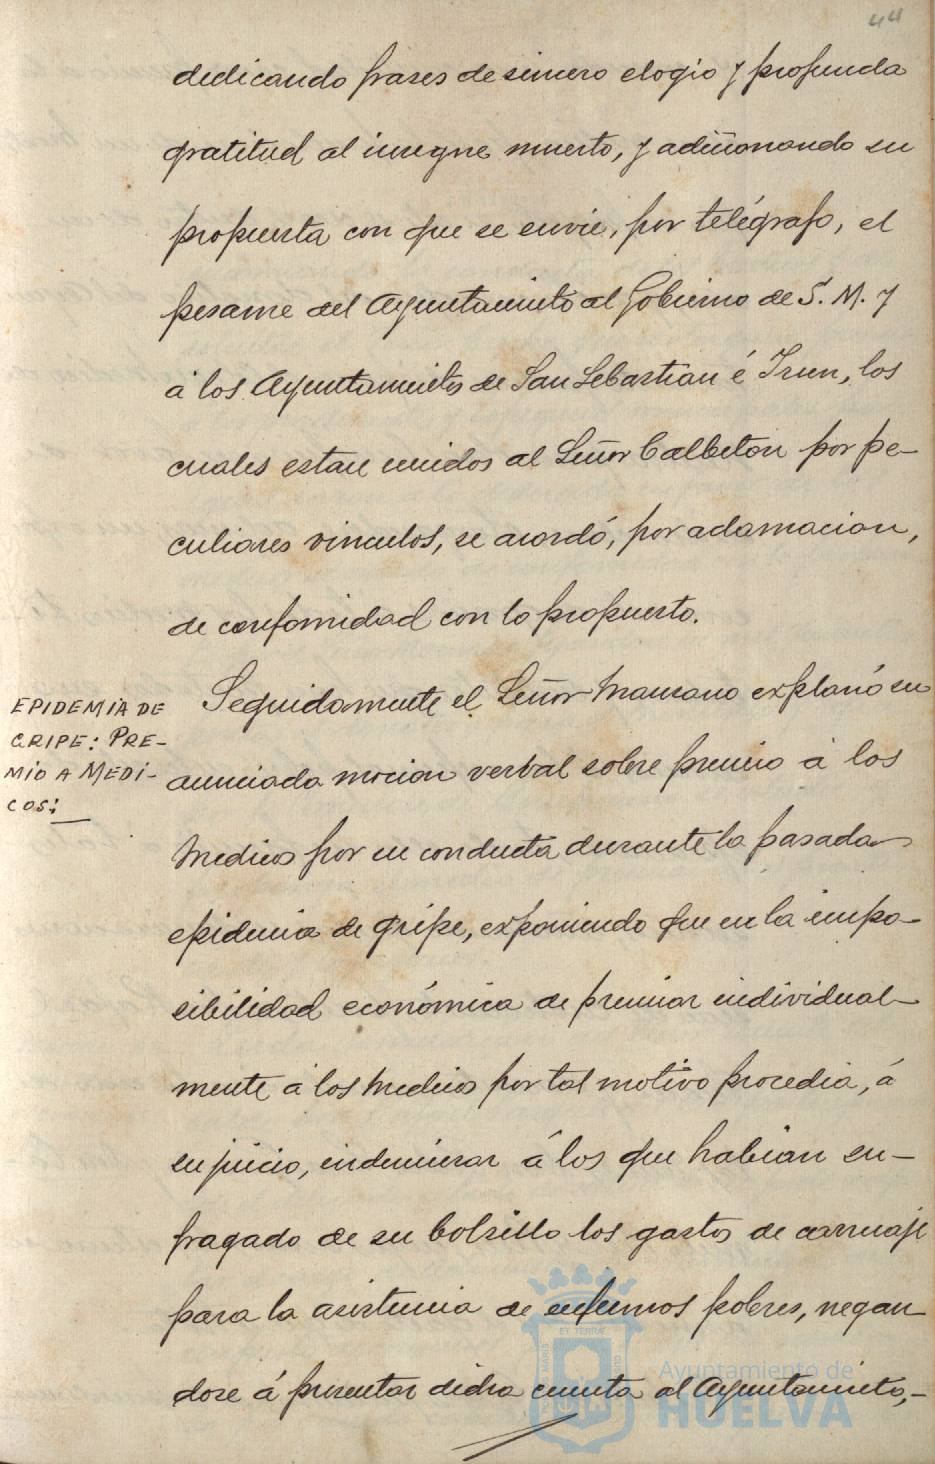 44
dedicando frases de sincero elogio y profunda
gratitud al insigne muerto, y adicionando su
propuesta con que se envie, por telégrafo, el
pesame del Ayuntamiento al Gobierno de S. M. y
á los Ayuntamientos de San Sebastian é Irun, los
cuales estan unidos al Señor Calbeton por pe-
culiares vinculos, se acordó, por aclamacion,
de conformidad con lo propuesto.
EPIDEMIA DE
GRIPE: PRE-
MIO A MEDI-
COS:
Seguidamente el Señor Manzano explanó su
anunciada mocion verbal sobre premio á los
Medicos por su conducta durante la pasada
epidemia de gripe, exponiendo que en la impo-
sibilidad económica de premiar individual-
mente á los Medicos por tal motivo procedia, á
su juicio, indemnizar á los que habian su-
fragado de su bolsillo los gastos de carruaje
para la asistencia de enfermos pobres, negan-
dose á presentar dicha cuenta al Ayuntamiento,-
Ayuntamiento de
HUELVA